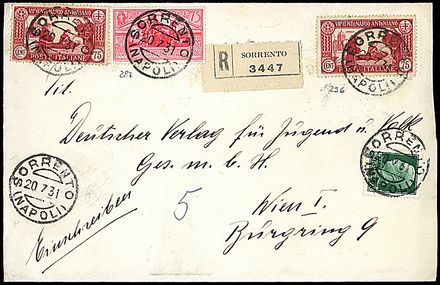 VII CENTENARIO ANTONIANO
CENT 75
POSTE ITALIANE
SORRENTO
20.7.31
(NAPOLI)
SORRENTO
20.7.31
(NAPOLI)
R
SORRENTO
3447
VII CENTENARIO ANTONIANO
CENT 75
POSTE ITALIANE
SORRENTO
(NAPOLI)
Tit.
Deutscher Verlag für Jugend u. Volk
Ges. m. b. H.
SORRENTO
(NAPOLI)
SORRENTO
20.7.31
(NAPOLI)
5
Wien I.
Einschreiben
Burgring 9